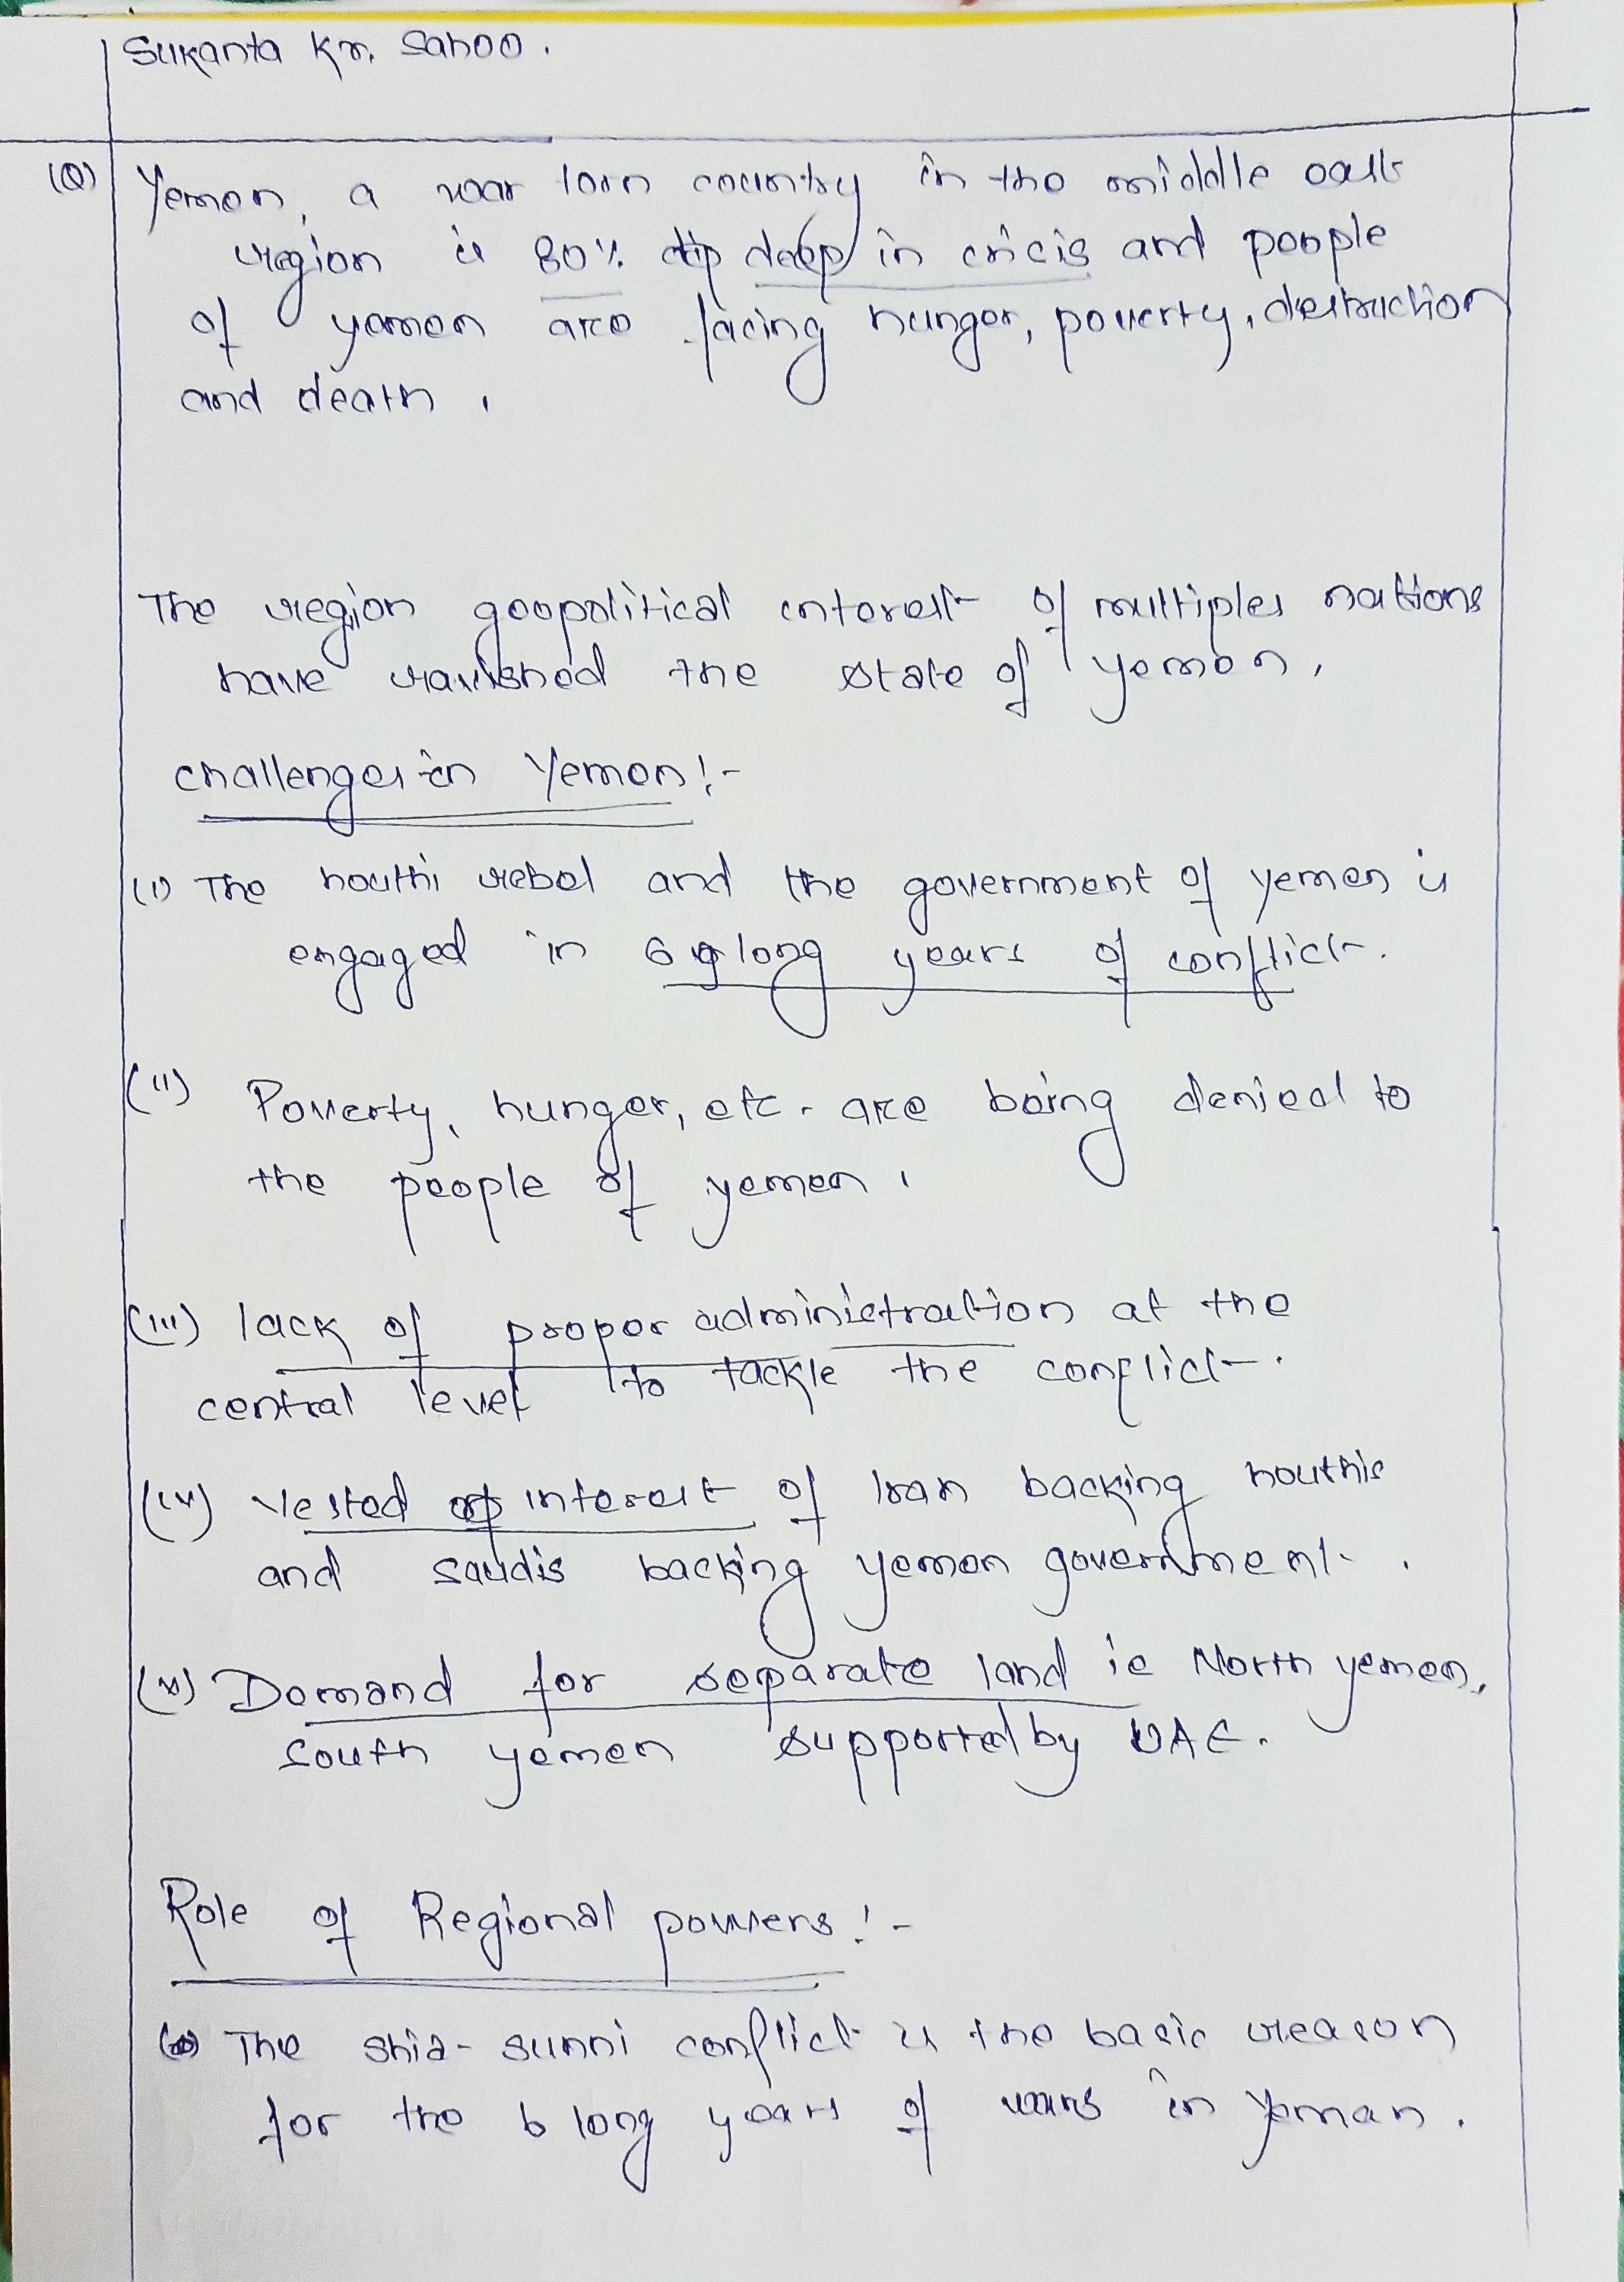 Sukanta Kr. Sahoo.
(Q) Yemen, a war torn country in the middle east
region is 80% deep in crisis and people
of yemen are facing hunger, poverty, destruction
and death.
The region geopolitical interest of multiples nations
have vanished the state of yemen.
Challenges in Yemen:-
(i) The houthi rebel and the government of yemen is
engaged in 6 long years of conflict.
(ii) Poverty, hunger, etc. are being denied to
the people of yemen.
(iii) lack of proper administration at the
central level to tackle the conflict.
(iv) Vested interest of Iran backing houthis
and saudis backing yemen government.
(v) Demand for separate land ie North yemen,
South yemen supported by UAE.
Role of Regional powers:-
The shia-sunni conflict is the basic reason
for the 6 long years of wars in Yeman.